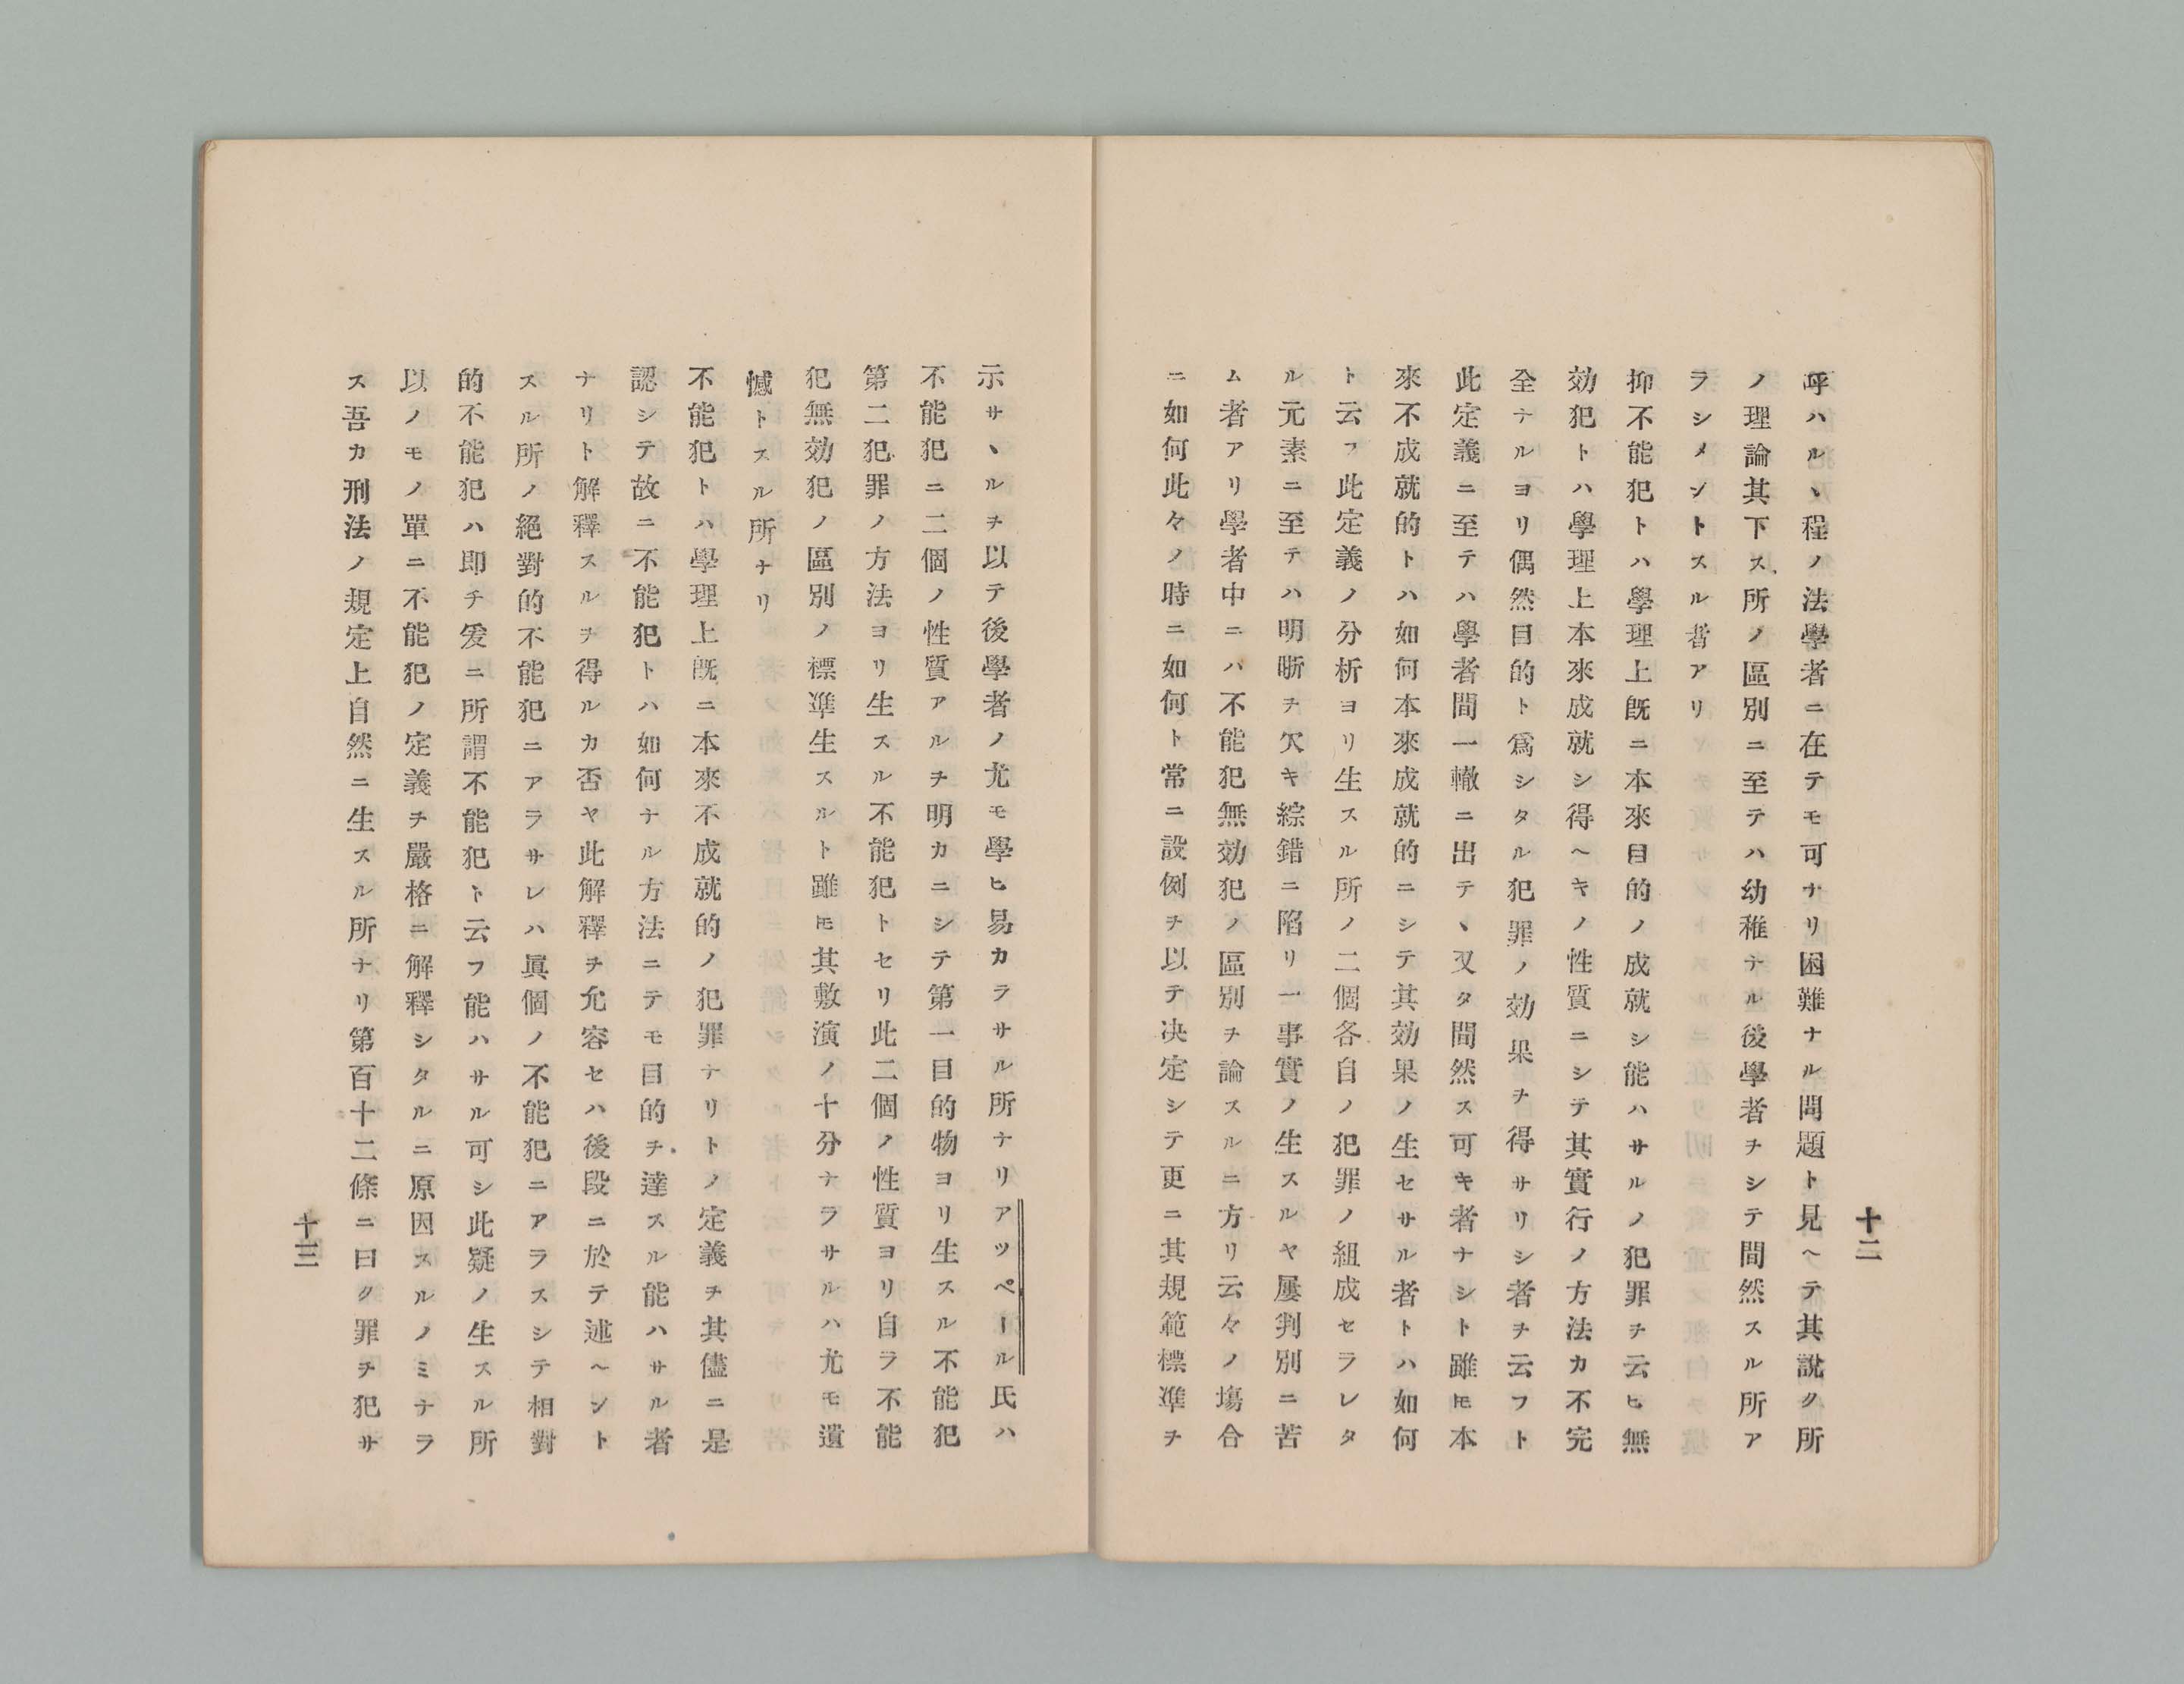 十二
呼ハルヽ程ノ法學者ニ在テモ可ナリ困難ナル問題ト見ヘテ其說ク所
ノ理論其下ス所ノ區別ニ至テハ幼稚ナル後學者ヲシテ間然スル所ア
ラシメントスル者アリ
抑不能犯トハ學理上旣ニ本來目的ノ成就シ能ハサルノ犯罪ヲ云ヒ無
効犯トハ學理上本來成就シ得ヘキノ性質ニシテ其實行ノ方法カ不完
全ナルヨリ偶然目的ト爲シタル犯罪ノ効果ヲ得サリシ者ヲ云フト
此定義ニ至テハ學者間一轍ニ出テヽ又タ間然ス可キ者ナシト雖𪜈本
來不成就的トハ如何本來成就的ニシテ其効果ノ生セサル者トハ如何
ト云フ此定義ノ分析ヨリ生スル所ノ二個各自ノ犯罪ノ組成セラレタ
ル元素ニ至テハ明晰ヲ欠キ綜錯ニ陷リ一事實ノ生スルヤ屢判別ニ苦
ム者アリ學者中ニハ不能犯無効犯ノ區別ヲ論スルニ方リ云々ノ塲合
ニ如何此々ノ時ニ如何ト常ニ設例ヲ以テ决定シテ更ニ其規範標準ヲ
示サヽルヲ以テ後學者ノ尤モ學ヒ易カラサル所ナリアツペール氏ハ
不能犯ニ二個ノ性質アルヲ明カニシテ第一目的物ヨリ生スル不能犯
第二犯罪ノ方法ヨリ生スル不能犯トセリ此二個ノ性質ヨリ自ラ不能
犯無効犯ノ區別ノ標準生スルト雖𪜈其敷演ノ十分ナラサルハ尤モ遺
憾トスル所ナリ
不能犯トハ學理上旣ニ本來不成就的ノ犯罪ナリトノ定義ヲ其儘ニ是
認シテ故ニ不能犯トハ如何ナル方法ニテモ目的ヲ達スル能ハサル者
ナリト解釋スルヲ得ルカ否ヤ此解釋ヲ允容セハ後段ニ於テ述ヘント
スル所ノ絕對的不能犯ニアラサレハ眞個ノ不能犯ニアラスシテ相對
的不能犯ハ卽チ爰ニ所謂不能犯ト云フ能ハサル可シ此疑ノ生スル所
以ノモノ單ニ不能犯ノ定義ヲ嚴格ニ解釋シタルニ原因スルノミナラ
ス吾カ刑法ノ規定上自然ニ生スル所ナリ第百十二條ニ曰ク罪ヲ犯サ
十三